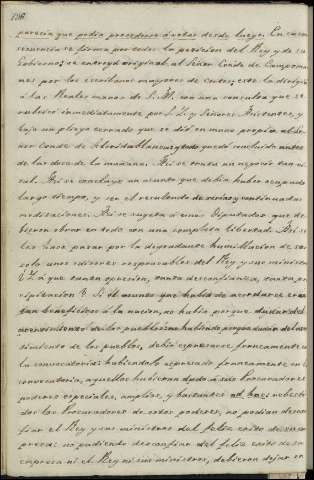 136
parecia que podia procederse á votar desde luego. En su con
secuencia se firma por todos la peticion del Rey y de su
Gobierno; se entregó original al Señor Conde de Campoma
nes por los escribanos mayores de Cortes; este la dirigió
á las Reales manos de S. M. con una consulta que se
rubricó inmediatamente por S. I. y Señores Asistentes, y
bajo un pliego cerrado que se dió en mano propia al Se
ñor Conde de Floridablanca; y todo quedó concluido antes
de las doce de la mañana. Asi se trata un negocio tan
Asi se concluye un asunto que debia haber ocupado
largo tiempo, y ser el resultado de serias y continuadas
meditaciones. Asi se sugeta á unos Diputados que de
bieron obrar en todo con una completa libertad. Asi se
les hace pasar por la degradante humillacion de
solo unos de los Rey y sus ministros
á que tanta opresion, tanta desconfianza, tanta pre
cipitacion? Si el asunto que habia de acordarse era
tan benefico á la nacion, no habia porque dudar del
consentimiento de los pueblos;
timiento de los pueblos, debia espresarse francamente en
la convocatoria; habiendolo espresado francamente en la
convocatoria, aquellos hubieran dado á sus Procuradores
poderes especiales, amplios, y bastantes al
dos los Procuradores de estos poderes, no podian descon
fiar el Rey y sus ministros del feliz exito de su em
presa: no pudiendo desconfiar del feliz exito de su
empresa ni el Rey ni sus ministros, debieron dejar en